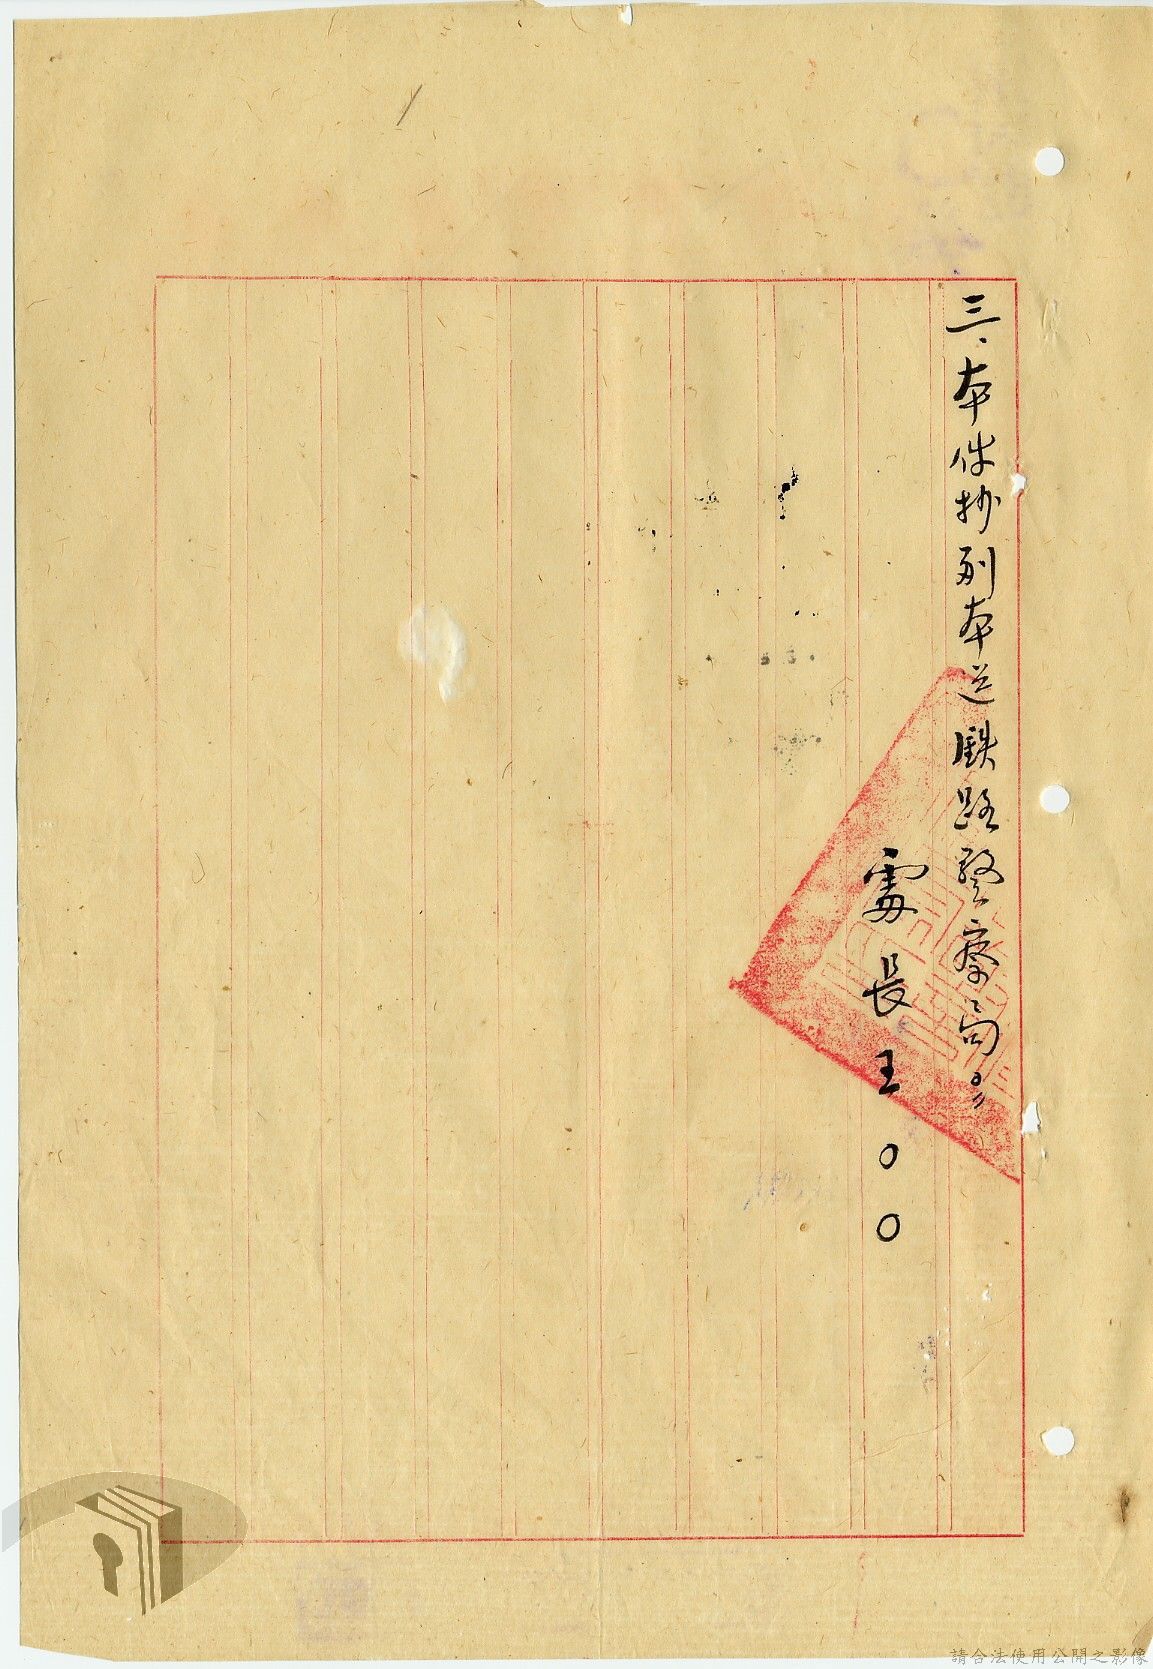 三、本件抄副本送鉄路警察局。〃
處長王〇〇
請合法使用公開之影像